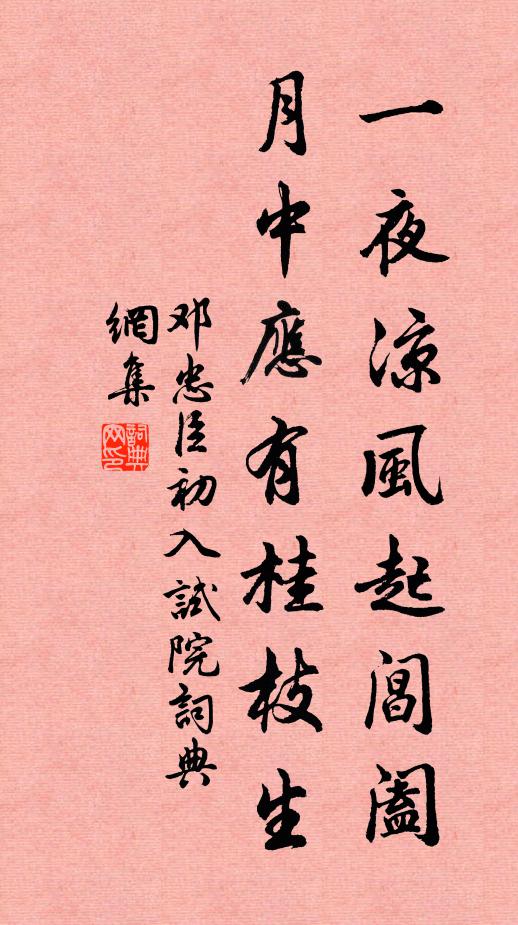 一夜涼風起閶闔
月中應有桂枝生
邓忠臣初入試院詞典
網集
詞典网印